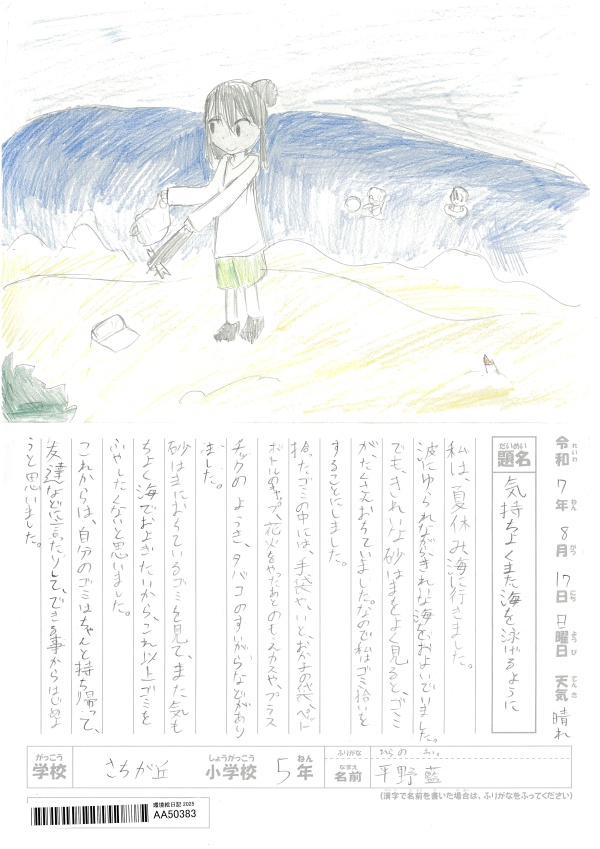 令和 れいわ 7 年 ねん 8 月 がつ 17 日 にち 日 曜日 ようび 天気 てんき 晴れ
だいめい 題名 気持ちよくまた海を泳げるように
私は、夏休み海に行きました。
波にゆられながらきれいな海をおよいでいました。
でも、きれいな砂はまをよく見ると、ゴミ
が、たくさんおちていました。なので私はゴミ拾いを
することにしました。
拾ったゴミの中には、手袋や、いと、おかしの袋、ペット
ボトルのキャップ、花火をやったあとのもえカスや、プラス
チックのようき、タバコのすいがらなどがあり
ました。
砂はまにおちているゴミを見て、また気も
ちよく海でおよぎたいから、これ以上ゴミを
ふやしたくないと思いました。
これからは、自分のゴミはちゃんと持ち帰って、
友達などに言ったりして、できる事からはじめよ
うと思いました。
がっこう 学校 さちが丘 しょうがっこう 小学校 5 年 ねん
ふりがな ひらの あい
なまえ 名前 平野 藍
(漢字で名前を書いた場合は、ふりがなをふってください)
環境絵日記 2025
AA50383